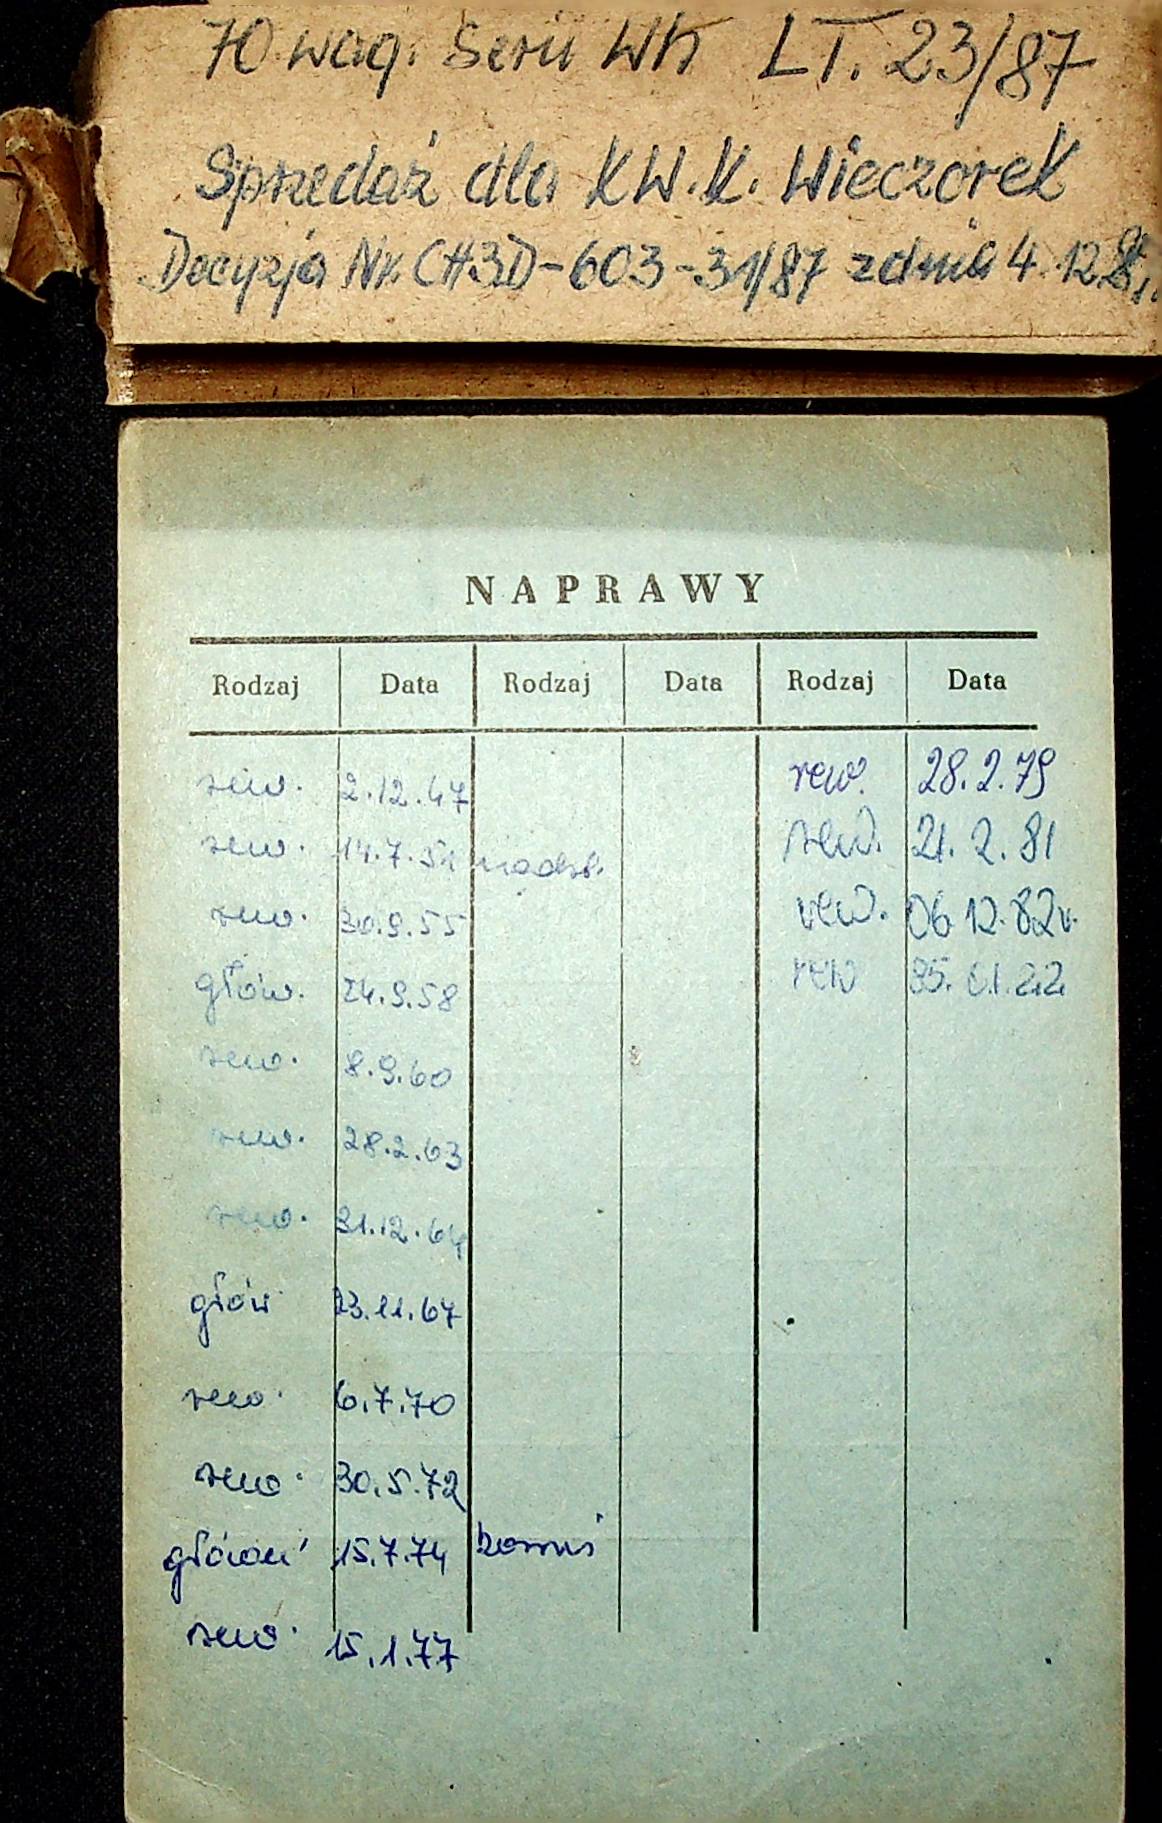 70 wag. Serii Wh LT. 23/87
Sprzedaż dla KW.K. Wieczorek
Decyzja Nr. CH3D-603-31/87 z dnia 4.12.
NAPRAWY
Rodzaj Data Rodzaj Data Rodzaj Data
rew. 2.12.47 rew. 28.2.79
rew. 14.7.51 rew. 21.2.81
rew. 30.9.55 rew. 06.12.82r.
głów. 24.9.58 rew 85.01.22
rew. 8.9.60
rew. 28.2.63
rew. 31.12.64
głów 23.11.67
rew. 6.7.70
rew. 30.5.72
15.7.74
rew. 15.1.77